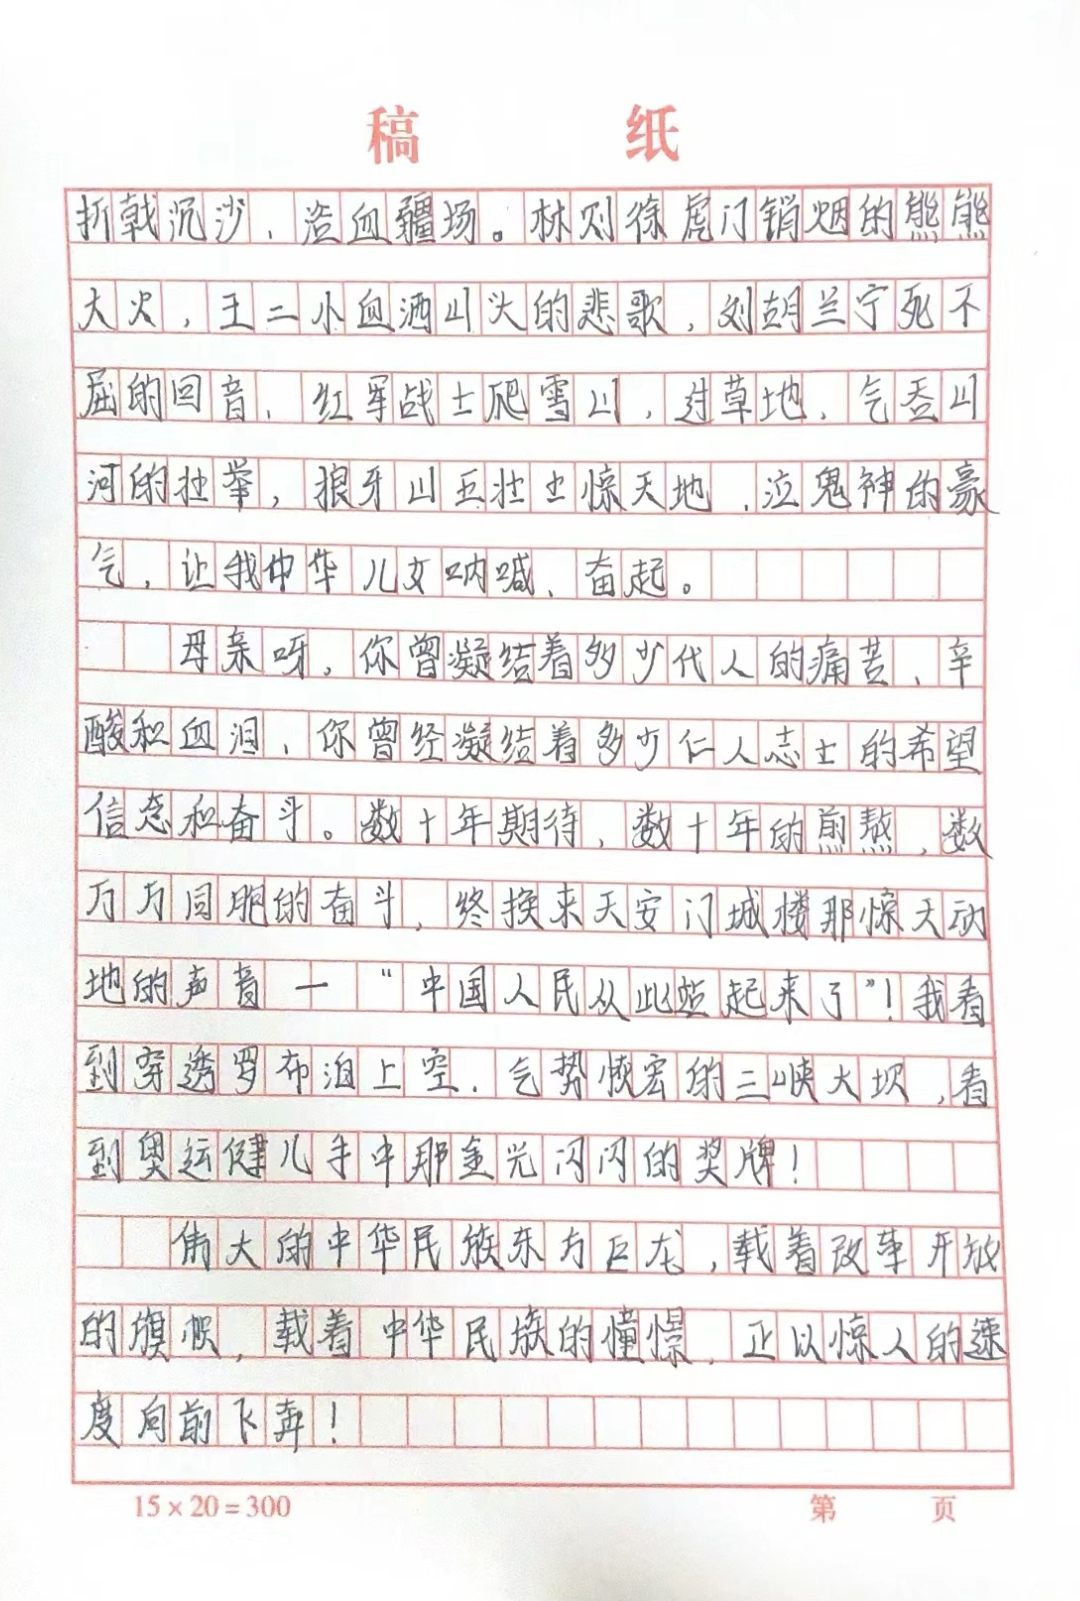 稿 纸
折戟沉沙，溢血疆场。林则徐虎门销烟的熊熊
大火，王二小血洒山头的悲歌，刘胡兰宁死不
屈的回音，红军战士爬雪山，过草地，气吞山
河的壮举，狼牙山五壮士惊天地，泣鬼神的豪
气，让我中华儿女呐喊、奋起。
母亲呀，你曾凝结着多少代人的痛苦、辛
酸和血泪，你曾经凝结着多少仁人志士的希望
信念和奋斗。数十年期待，数十年的煎熬，数
万万同胞的奋斗，终换来天安门城楼那惊天动
地的声音一“中国人民从此站起来了”！我看
到穿透罗布泊上空，气势恢宏的三峡大坝，看
到奥运健儿手中那金光闪闪的奖牌！
伟大的中华民族东方巨龙，载着改革开放
的旗帜，载着中华民族的憧憬，正以惊人的速
度向前飞奔！
15×20=300 第 页